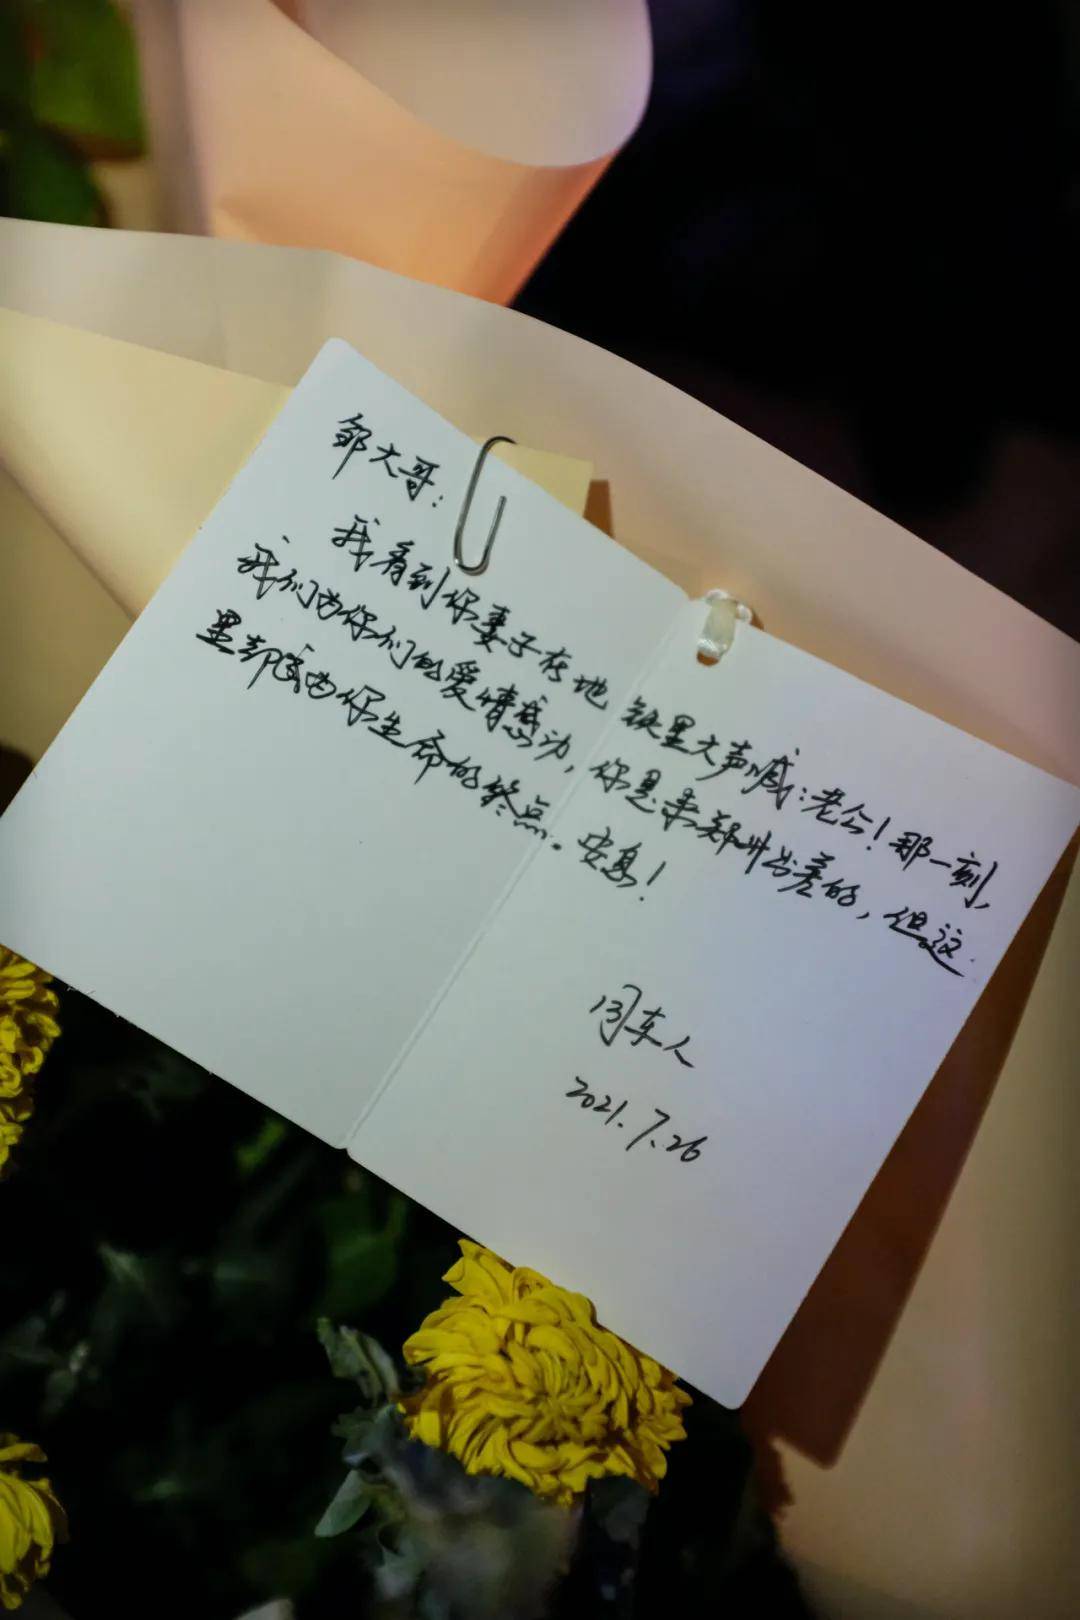 邹大哥:
我看到你妻子在地铁里大声喊:老公!那一刻,
我们为你们的爱情感动,你是来郑州出差的,但这
里却成为你生命的终点。安息!
同车人
2021.7.26